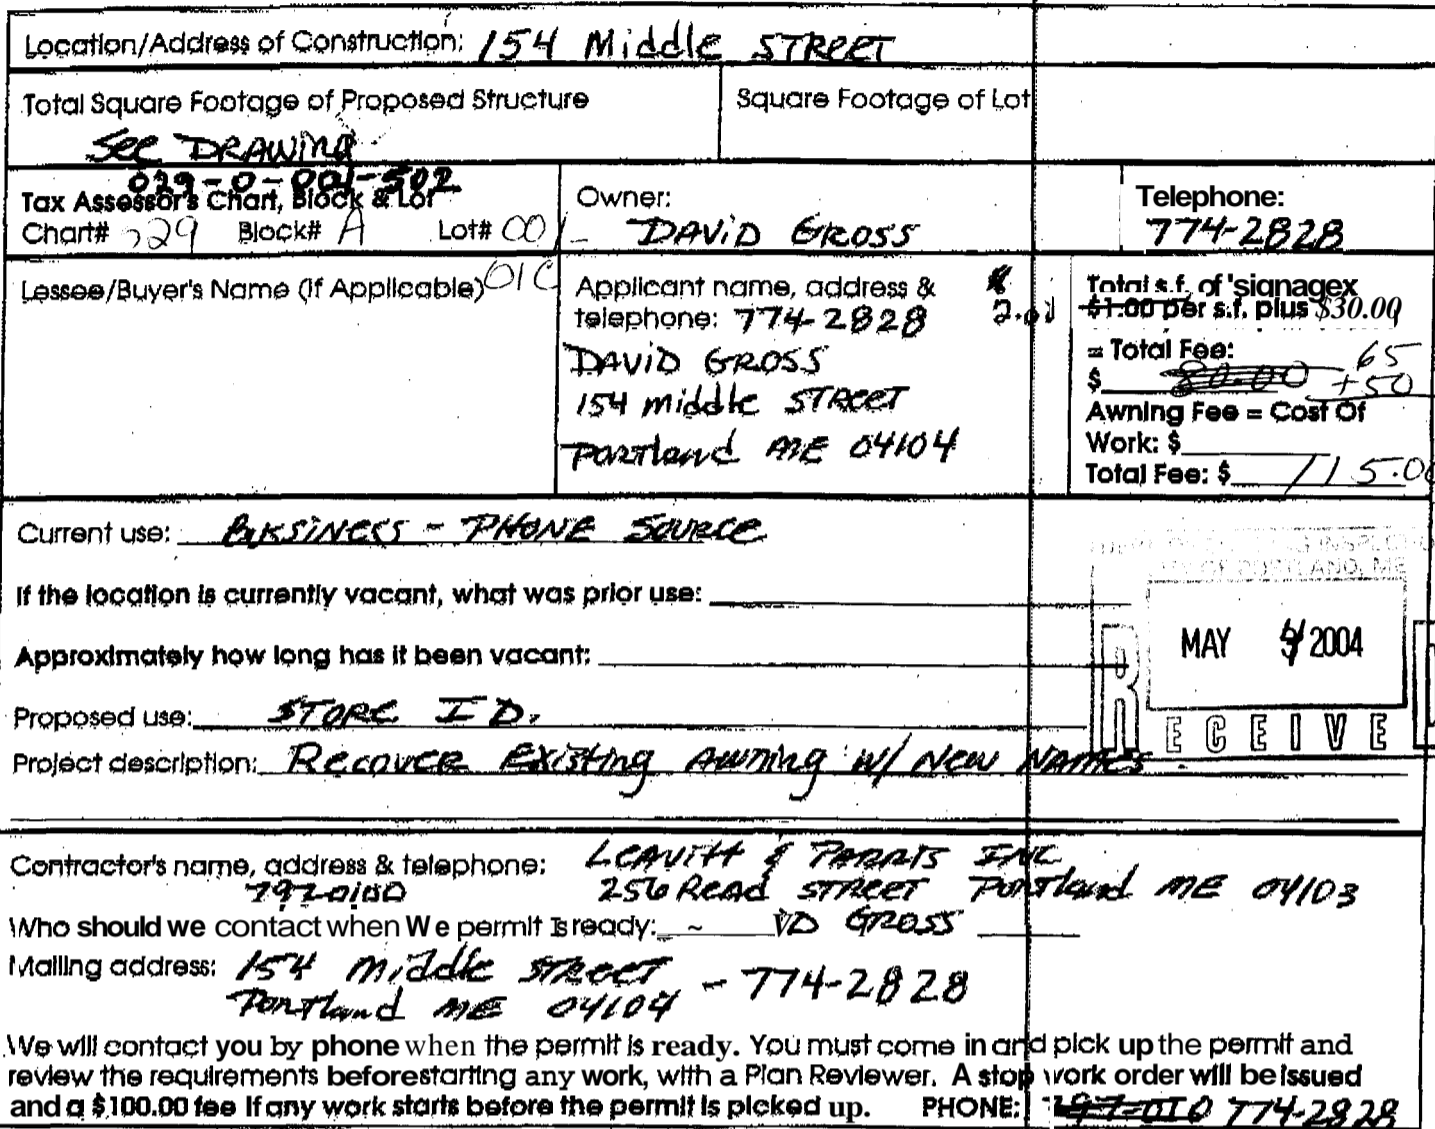 Location/Address of Construction: 154 Middle STREET
Total Square Footage of Proposed Structure
See DRAWING
Square Footage of Lot
029-0-001-502
Tax Assessor's Chart, Block & Lot
Chart# 029 Block# A Lot# 001
01C
Owner:
DAVID GROSS
Telephone:
774-2828
Lessee/Buyer's Name (If Applicable)
Applicant name, address &
telephone: 774-2828
DAVID GROSS
154 middle STREET
Portland ME 04104
Total s.f. of signagex
$1.00 per s.f. plus $30.00
= Total Fee:
$ 80.00 65
+50
Awning Fee = Cost Of
Work: $
Total Fee: $ 115.00
Current use: BUSINESS - PHONE SOURCE
If the location is currently vacant, what was prior use:
Approximately how long has it been vacant:
Proposed use: STORE I D.
Project description: Recover Existing Awning w/ New NAMES.
MAY 2004
RECEIVE
Contractor's name, address & telephone: LEAVITT & PARRIS INC
7970100 256 Read STREET Portland ME 04103
Who should we contact when We permit Is ready: VD GROSS
Mailing address: 154 Middle STREET - 774-2828
Portland ME 04104
We will contact you by phone when the permit is ready. You must come in and pick up the permit and
review the requirements beforestarting any work, with a Plan Reviewer. A stop work order will be issued
and a $100.00 fee If any work starts before the permit Is picked up. PHONE: 774-2828